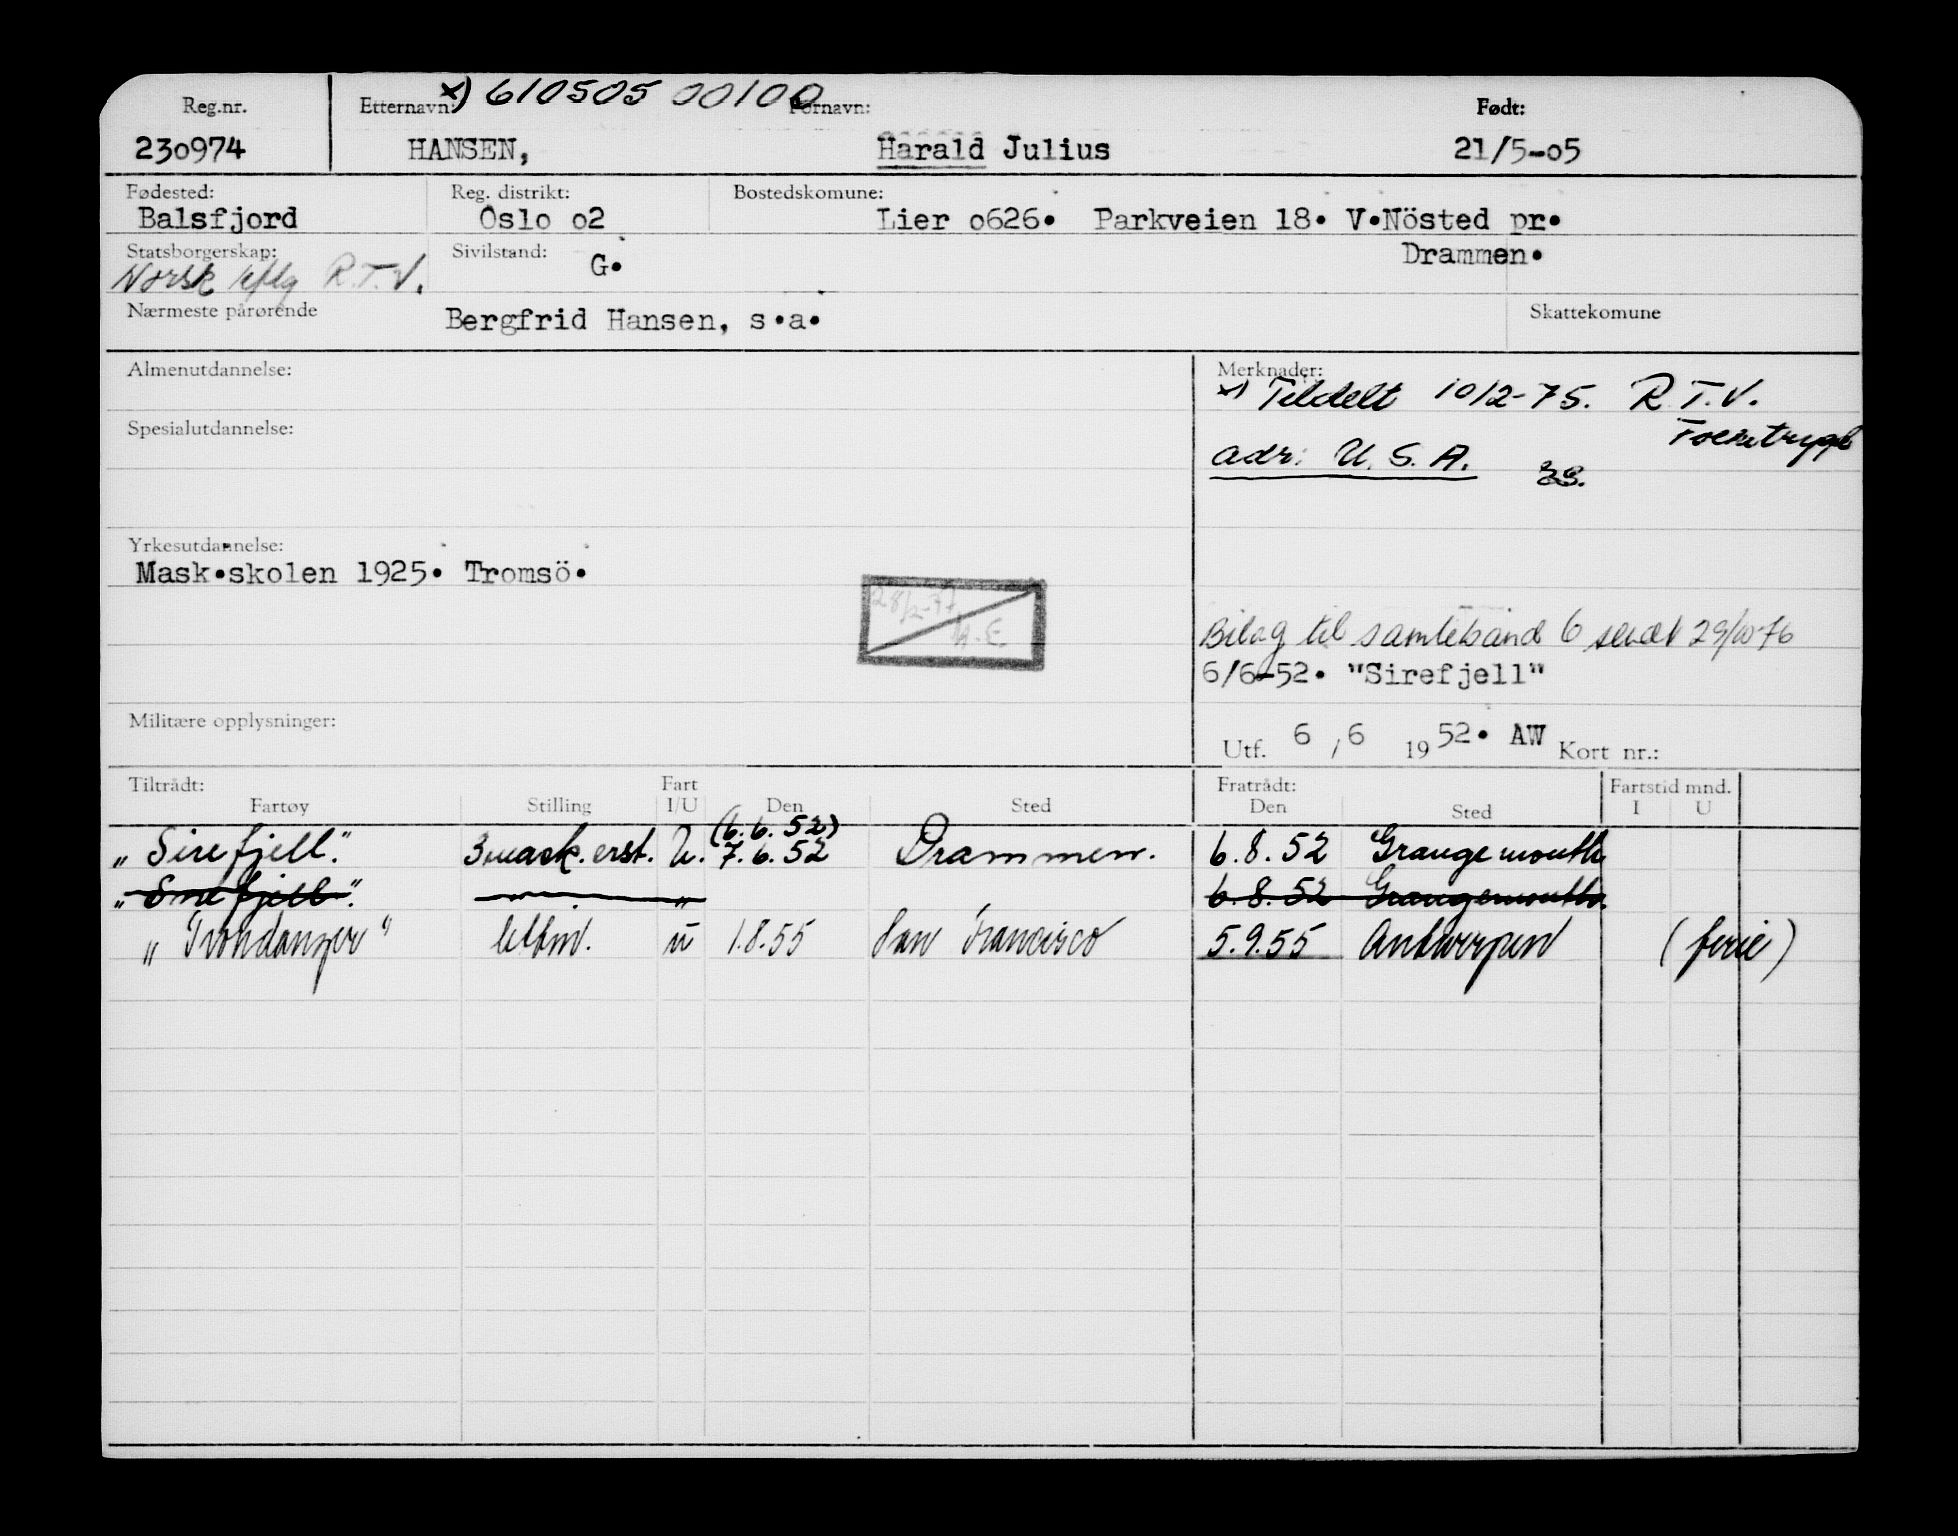 x) 610505 00100
Reg.nr. Etternavn: Fornavn: Født:
230974 HANSEN, Harald Julius 21/5-05
Fødested: Reg. distrikt: Bostedskomune:
Balsfjord Oslo o2 Lier o626. Parkveien 18. V.Nösted pr.
Statsborgerskap: Sivilstand: Drammen.
Norsk iflg R.T.V. G.
Nærmeste pårørende Skattekomune
Bergfrid Hansen, s.a.
Almenutdannelse: Merknader:
x) Tildelt 10/2-75. R.T.V.
Spesialutdannelse: Folketrygd
adr: U.S.A.
Yrkesutdannelse:
Mask.skolen 1925. Tromsö.
28/2-77
Bilag til samlebånd 6 sendt 29/10-76
6/6-52. "Sirefjell"
Militære opplysninger:
Utf. 6 / 6 19 52. AW Kort nr.:
Tiltrådt: Fart Fratrådt: Fartstid mnd.
Fartøy Stilling I/U Den Sted Den Sted I U
(6.6.52)
"Sirefjell." 3 mask.erst. U. 7.6.52 Drammen. 6.8.52 Grangemouth
"Sirefjell." — " — 6.8.52 Grangemouth.
"Trondanger" u 1.8.55 San Francisco 5.9.55 Antwerpen (ferie)